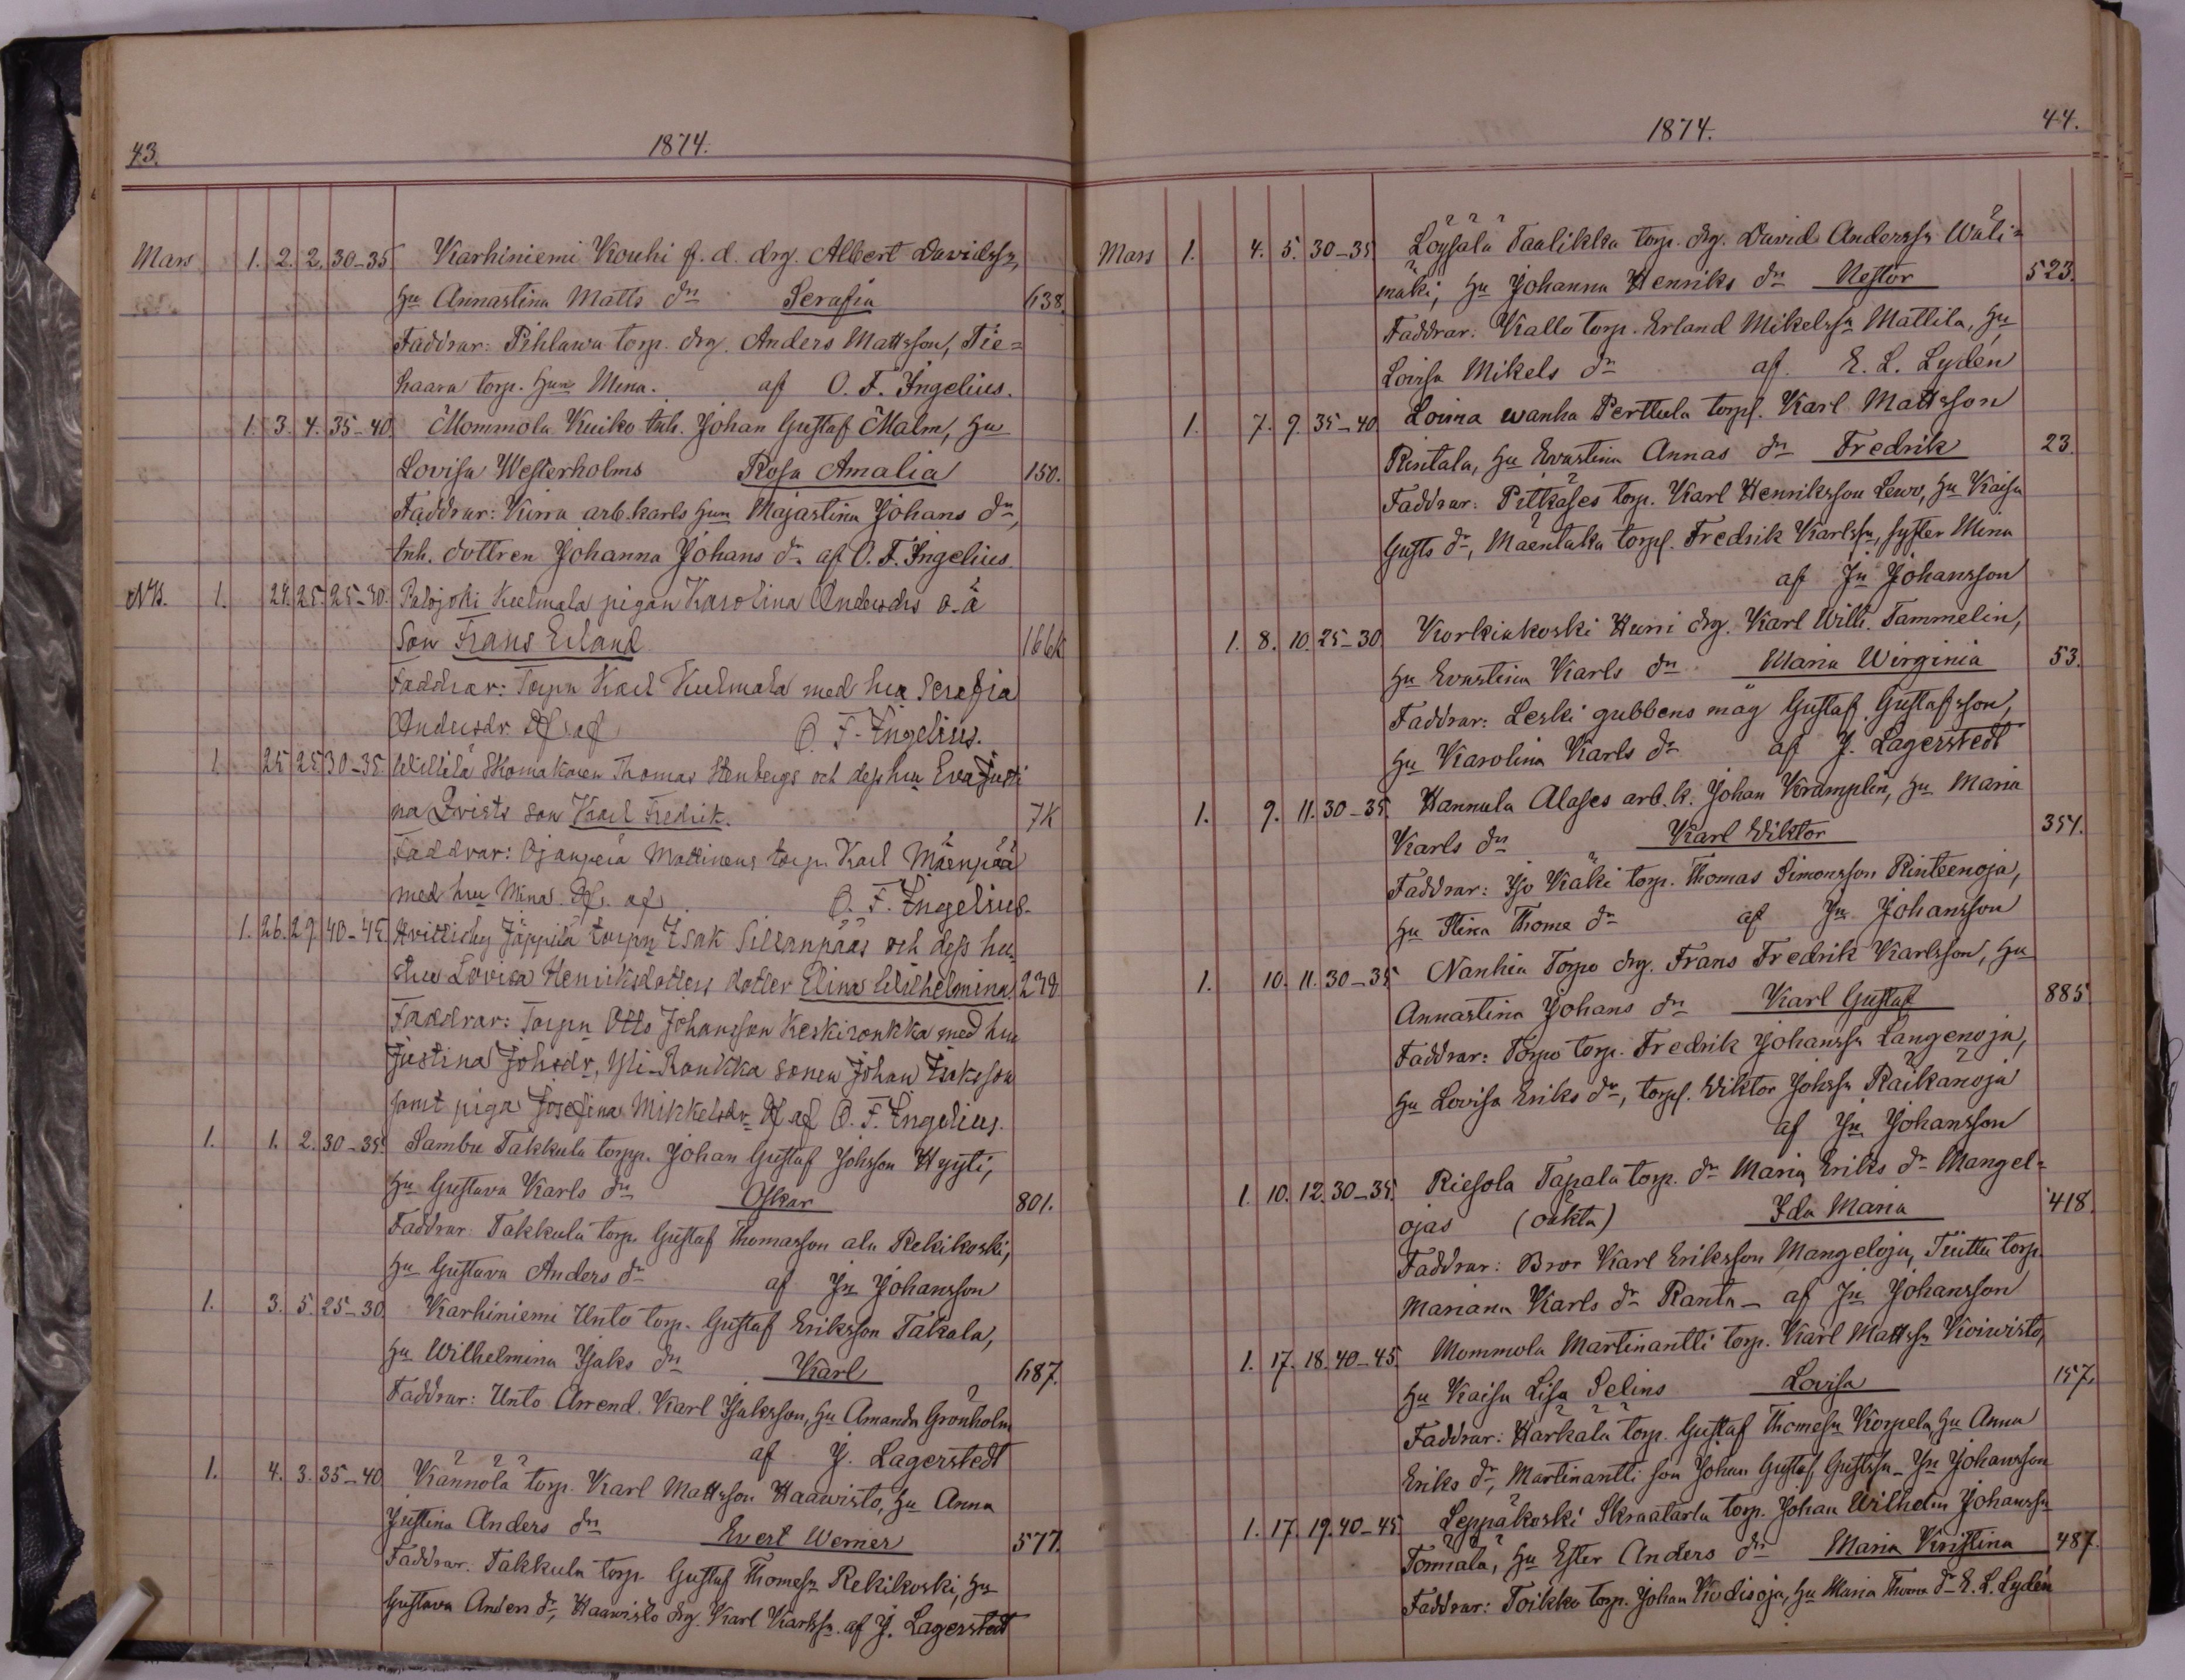 43.
1874.
Mars 1. 2. 2. 30-35 Karhiniemi Kouhi f. d. drg. Albert Davidssn,
Hu Annastina Matts dn Serafia 638.
Faddrar: Pihlawa torp. drg. Anders Mattsson, Tie=
haara torp. Hun Mina. af O. F. Ingelius.
1. 3. 4. 35-40 Mommola Kuiko Inh. Johan Gustaf Malm, Hu
Lovisa Westerholms Rosa Amalia 150.
Faddrar: Kirra arb.karls Hun Majastina Johans dn,
Inh. dottren Johanna Johans dr. af O. F. Ingelius.
NB. 1. 24. 25. 25-30. Palojoki Keelmala pigan Karolina Andersdrs o. ä
Son Frans Erland 166k
Faddrar: Torpn Karl Keelmala med hu Serafia
Andersdr Df. af O. F. Ingelius.
1. 25 25 30-35 Willilä Skomakaren Thomas Stenbergs och dess hu Eva Justi
na Qvists son Karl Fredrik. 7K
Faddrar: Ojanperä Mattinens torpn Karl Mäenpää
med hu Mina Df. af O. F. Ingelius.
1. 26. 29. 40-45 Hvittisby Jäppilä torpn Isak Sillanpääs och dess hu=
stru Lovisa Henriksdotters dotter Elina Wilhelmina. 238
Faddrar: Torpn Otto Johansson Keskironkka med hu
Justina Johsdr, Yli-Ronkka sonen Johan Isaksson
samt piga Josefina Mikkelsdr. Df af O. F. Ingelius.
1. 1. 2. 30-35. Sambu Takkula torpp. Johan Gustaf Johsson Hyyti,
Hu Gustava Karls dn Oskar 801.
Faddrar: Takkula torp. Gustaf Thomasson ala Rekikoski,
Hu Gustava Anders dr af Jn Johansson
1. 3. 5. 25-30. Karhiniemi Unto torp. Gustaf Eriksson Takala,
Hu Wilhelmina Isaks dn Karl 687.
Faddrar: Unto Arrend. Karl Isaksson, Hu Amanda Grönholm
af J. Lagerstedt
1. 4. 3. 35-40 Kännölä torp. Karl Mattsson Haawisto, Hu Anna
Justina Anders dn Evert Werner 577.
Faddrar: Takkula torp. Gustaf Thomesn Rekikoski, Hu
Gustava Anders dr, Haawisto drg. Karl Karlssn. af J. Lagerstedt
44.
1874.
Mars 1. 4. 5. 30-35 Löysälä Taalikka torp. drg. David Anderssn Wäli=
mäki, Hu Johanna Henriks dn Nestor 523.
Faddrar: Kallo torp. Erland Mikelssn Mattila, Hu
Lovisa Mikels dn af. E. L. Lydén
1. 7. 9. 35-40 Loima wanha Perttula torpf. Karl Mattsson
Rintala, Hu Evastina Annas dn Fredrik 23.
Faddrar: Pitkäses torp. Karl Henriksson Lewo, Hu Kaisa
Gusts dr, Mäentaka torpf. Fredrik Karlssn, syster Mina
af Jn Johansson
1. 8. 10. 25-30 Korkiakoski Hurri drg. Karl Wilh. Tammelin,
Hu Evastina Karls dn Maria Wirginia 53.
Faddrar: Leski gubbens måg Gustaf Gustafsson,
Hu Karolina Karls dn af J. Lagerstedt
1. 9. 11. 30-35. Hannula Alases arb. k. Johan Kramplin, Hu Maria
Karls dn Karl Wiktor 354.
Faddrar: Iso Käki torp. Thomas Simonsson Rinteenoja,
Hu Stina Thome dn af Jn Johansson
1. 10. 11. 30-35 Nanhia Torpo drg. Frans Fredrik Karlsson, Hu
Annastina Johans dn Karl Gustaf 885
Faddrar: Torpo torp. Fredrik Johanssn Langenoja,
Hu Lovisa Eriks dr, torpf. Wiktor Johssn Räikänoja
af Jn Johansson
1. 10. 12. 30-35. Riesola Tapala torp. dn Maria Eriks dr Mangel=
ojas (oäkta) Ida Maria 418.
Faddrar: Bror Karl Eriksson Mangeloja, Tiitta torp.
Mariana Karls dr Ranta - af Jn Johansson
1. 17. 18. 40-45 Mommola Martinantti torp. Karl Mattssn Koiwisto,
Hu Kaisa Lisa Selins Lovisa 157.
Faddrar: Härkälä torp. Gustaf Thomesn Korpela, Hu Anna
Eriks dr, Martinantti son Johan Gustaf Gustssn - Jn Johansson
1. 17. 19. 40-45 Leppäkoski Skraatarla torp. Johan Wilhelm Johanssn
Törmälä, Hu Ester Anders dn Maria Kristina 487.
Faddrar: Toikko torp. Johan Kodisoja, Hu Maria Thome dr E. L. Lydén